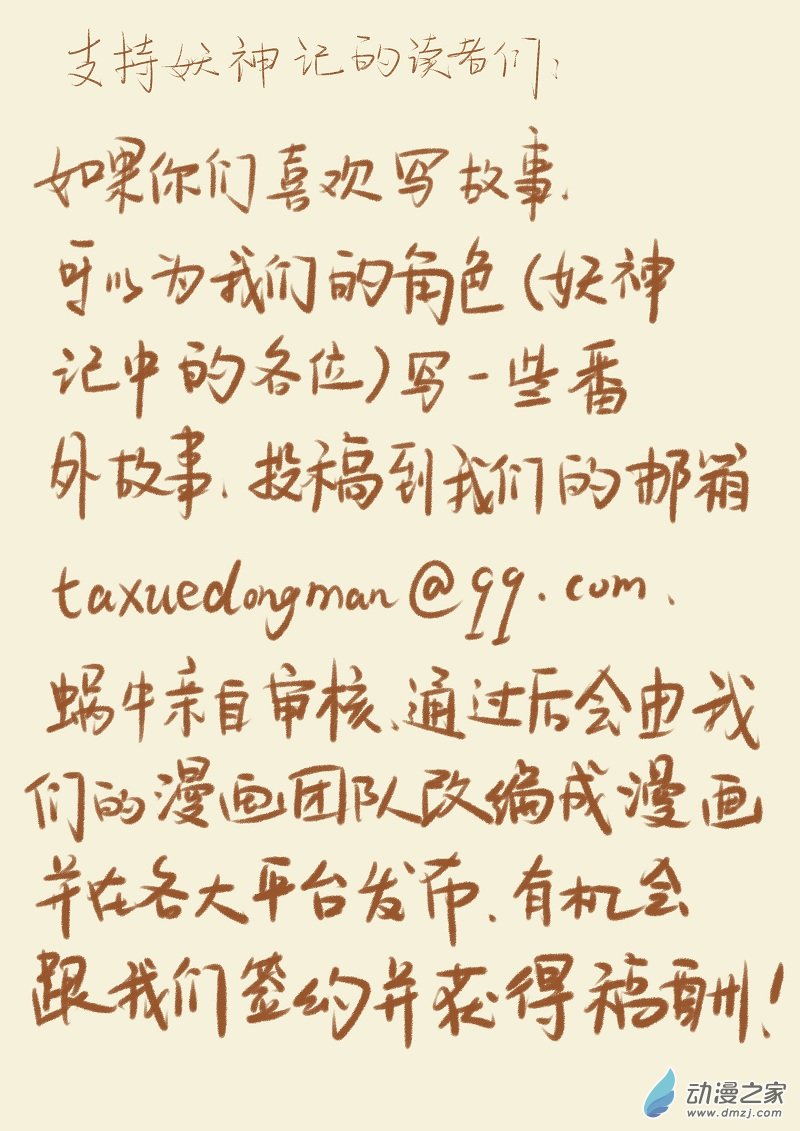 支持妖神记的读者们：
如果你们喜欢写故事、
可以为我们的角色（妖神
记中的各位）写一些番
外故事、投稿到我们的邮箱
taxuedongman@qq.com、
蜗牛亲自审核、通过后会由我
们的漫画团队改编成漫画
并在各大平台发布、有机会
跟我们签约并获得稿酬！
动漫之家
www.dmzj.com